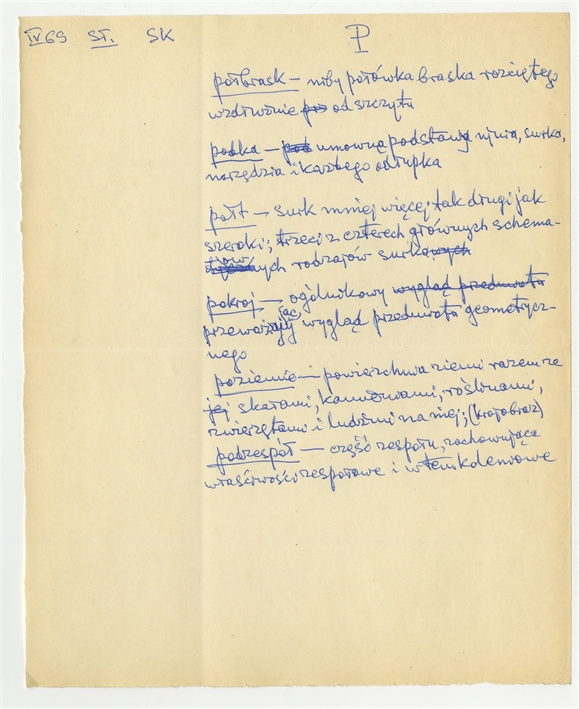 IV69 ST. SK P
półbrask – niby połówka braska rozciętego
wzdłużnie od szczytu
podka – umowną podstawą njuia, surka,
narzędzia i każdego odłupka
półt – surk mniej więcej tak długi jak
szeroki; trzeci z czterech głównych schema-
owych rodzajów surk
pokroj – ogólnikowy wygląd przedmiotu
przeważający wygląd przedmiotu geometrycz-
nego
poziemie – powierzchnia ziemi razem ze
jej skałami, kamieniami, roślinami,
zwierzętami i ludźmi na niej; (krajobraz)
podzespół – część zespołu, zachowująca
właściwości zespołowe i